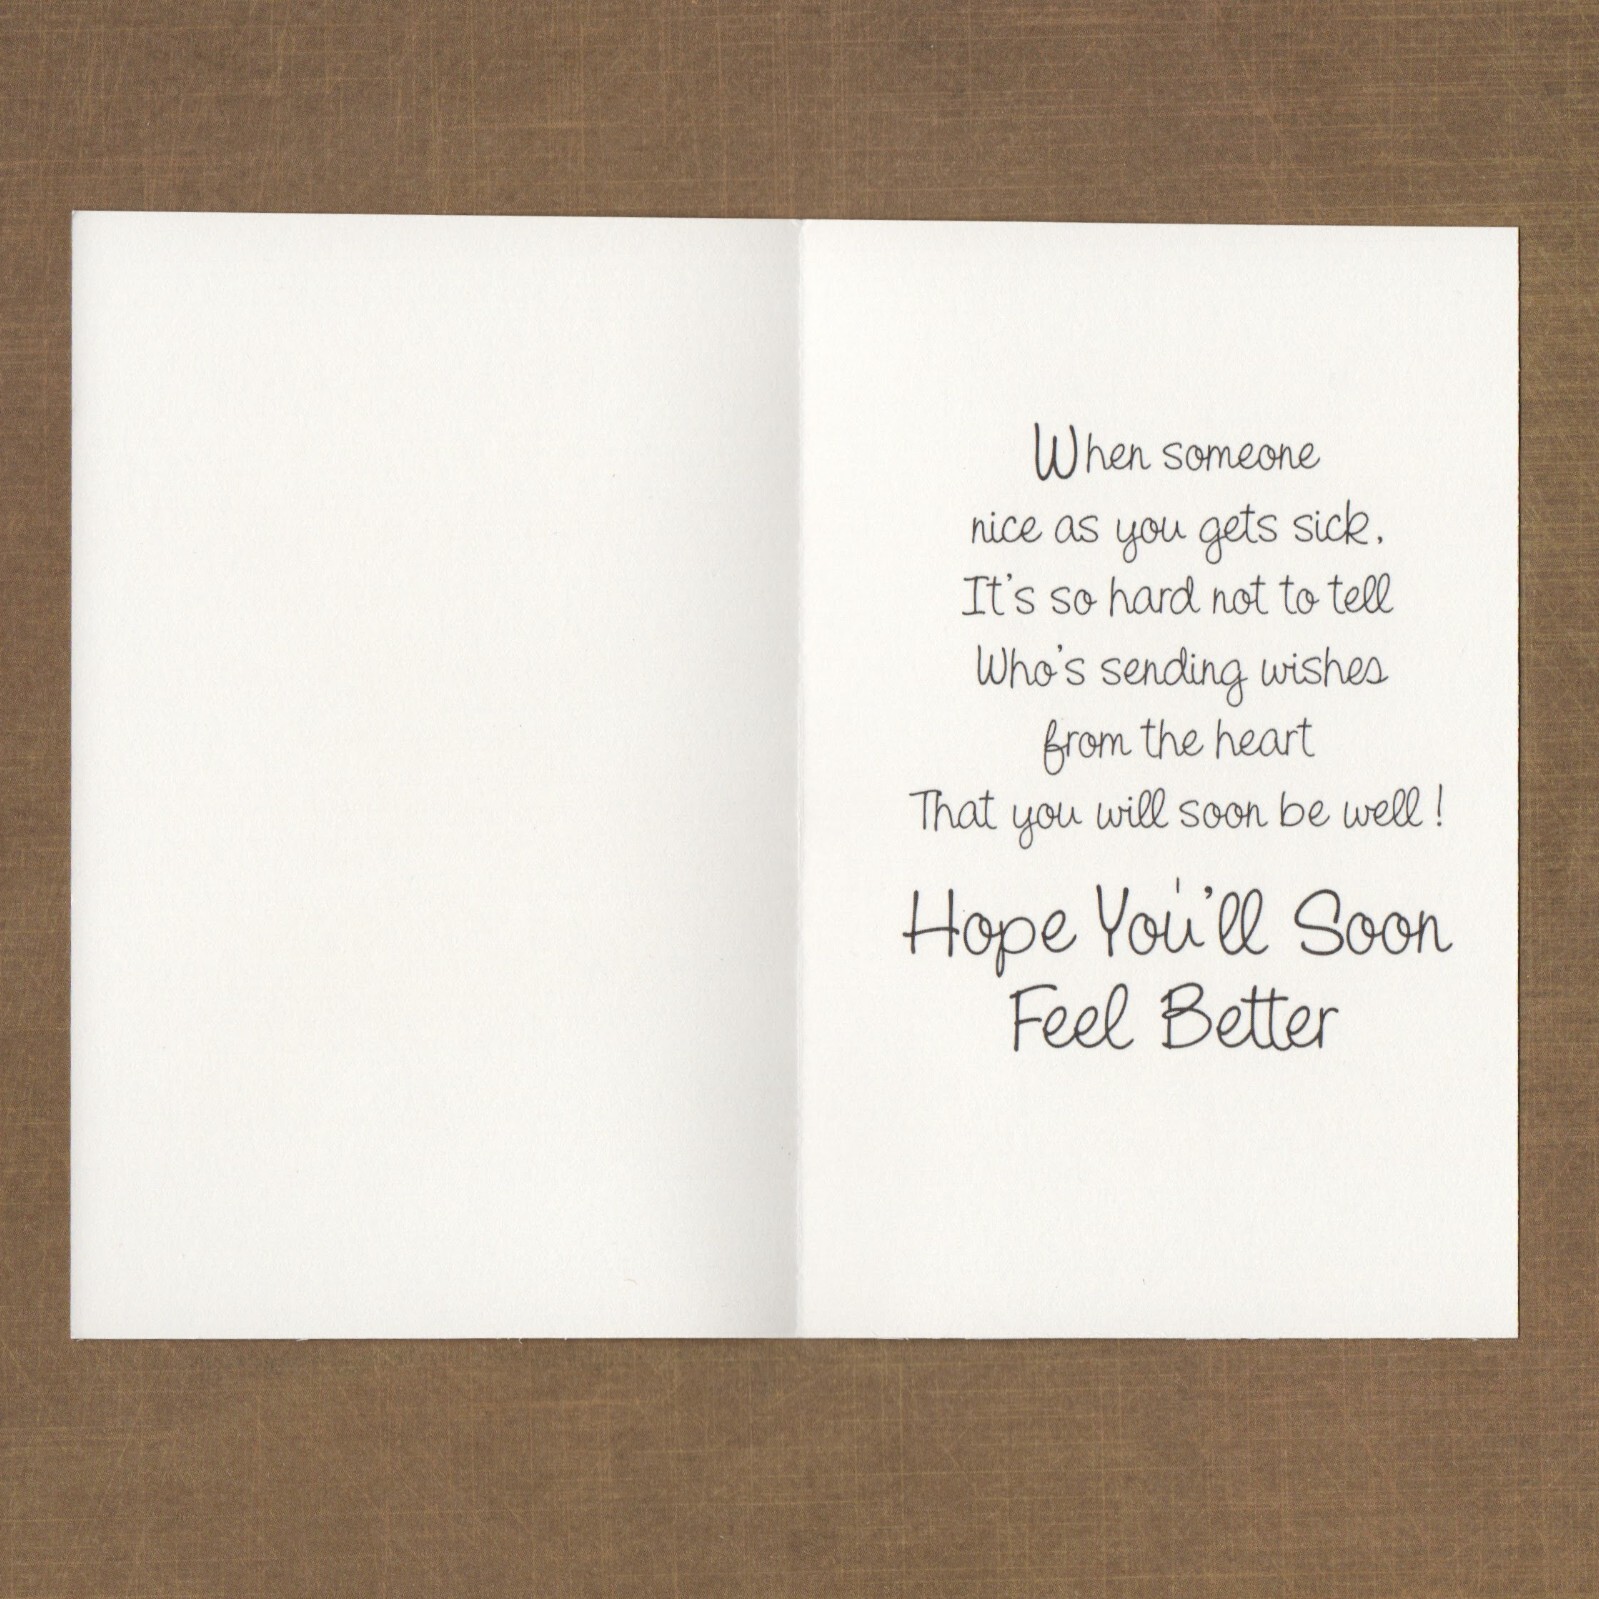 When someone
nice as you gets sick,
It's so hard not to tell
Who's sending wishes
from the heart
That you will soon be well!
Hope You'll Soon
Feel Better